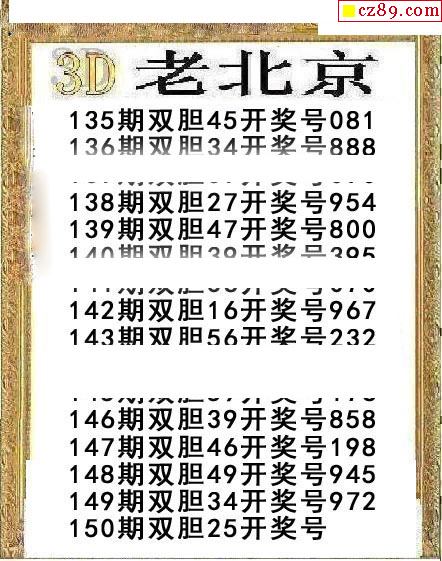 cz89.com
3D 老北京
135期双胆45开奖号081
136期双胆34开奖号888
138期双胆27开奖号954
139期双胆47开奖号800
140期双胆39开奖号395
142期双胆16开奖号967
143期双胆56开奖号232
146期双胆39开奖号858
147期双胆46开奖号198
148期双胆49开奖号945
149期双胆34开奖号972
150期双胆25开奖号